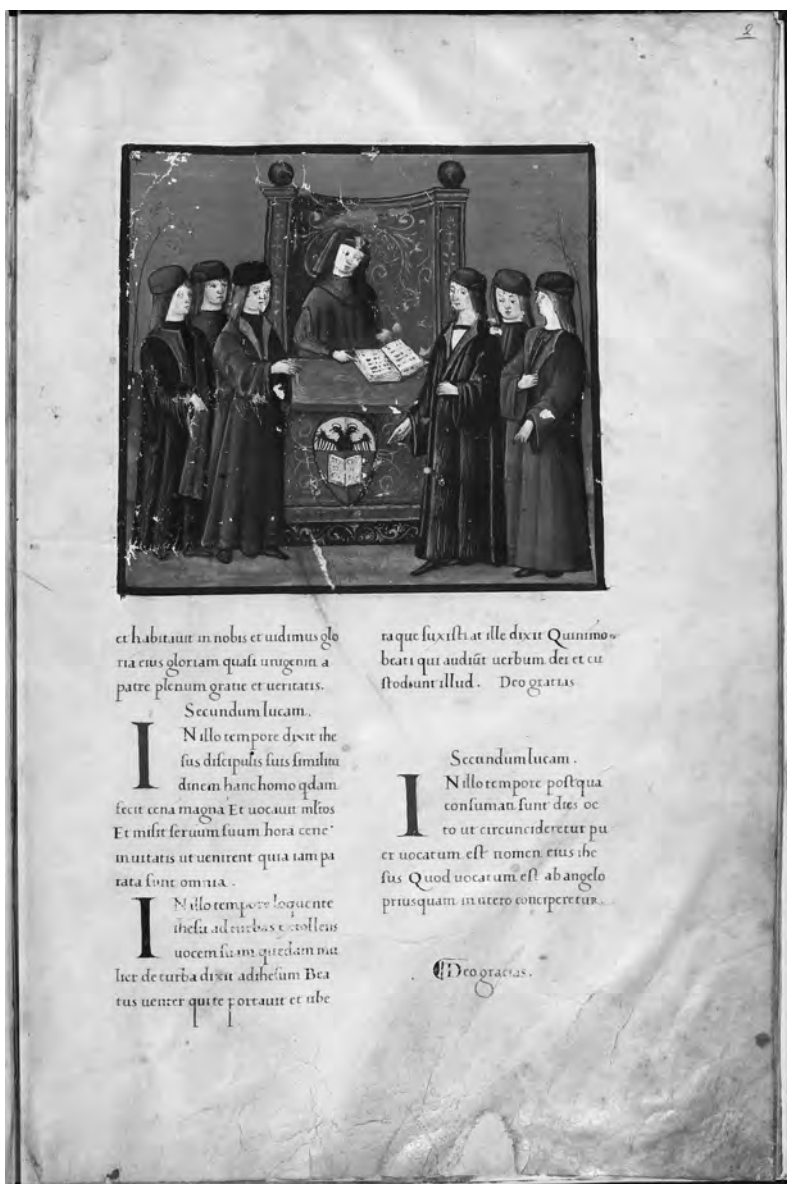 2
et habitauit in nobis et uidimus glo
ria eius gloriam quasi unigeniti a
patre plenum gratie et ueritatis.
Secundum lucam.
IN illo tempore dixit ihe
sus discipulis suis similitu
dinem hanc homo qdam
fecit cena magna Et uocauit mltos
Et misit seruum suum hora cene
inuitatis ut uenirent quia iam pa
rata sunt omnia.
IN illo tempore loquente
ihesu ad turbas extollens
uocem suam quedam mu
lier de turba dixit ad ihesum Bea
tus uenter qui te portauit et ube
ra que suxisti at ille dixit Quinimo
beati qui audiūt uerbum dei et cu
stodiunt illud. Deo gracias
Secundum lucam.
IN illo tempore postqua
consumati sunt dies oc
to ut circuncideretur pu
er uocatum est nomen eius ihe
sus Quod uocatum est ab angelo
priusquam in utero conciperetur.
Deo gracias.